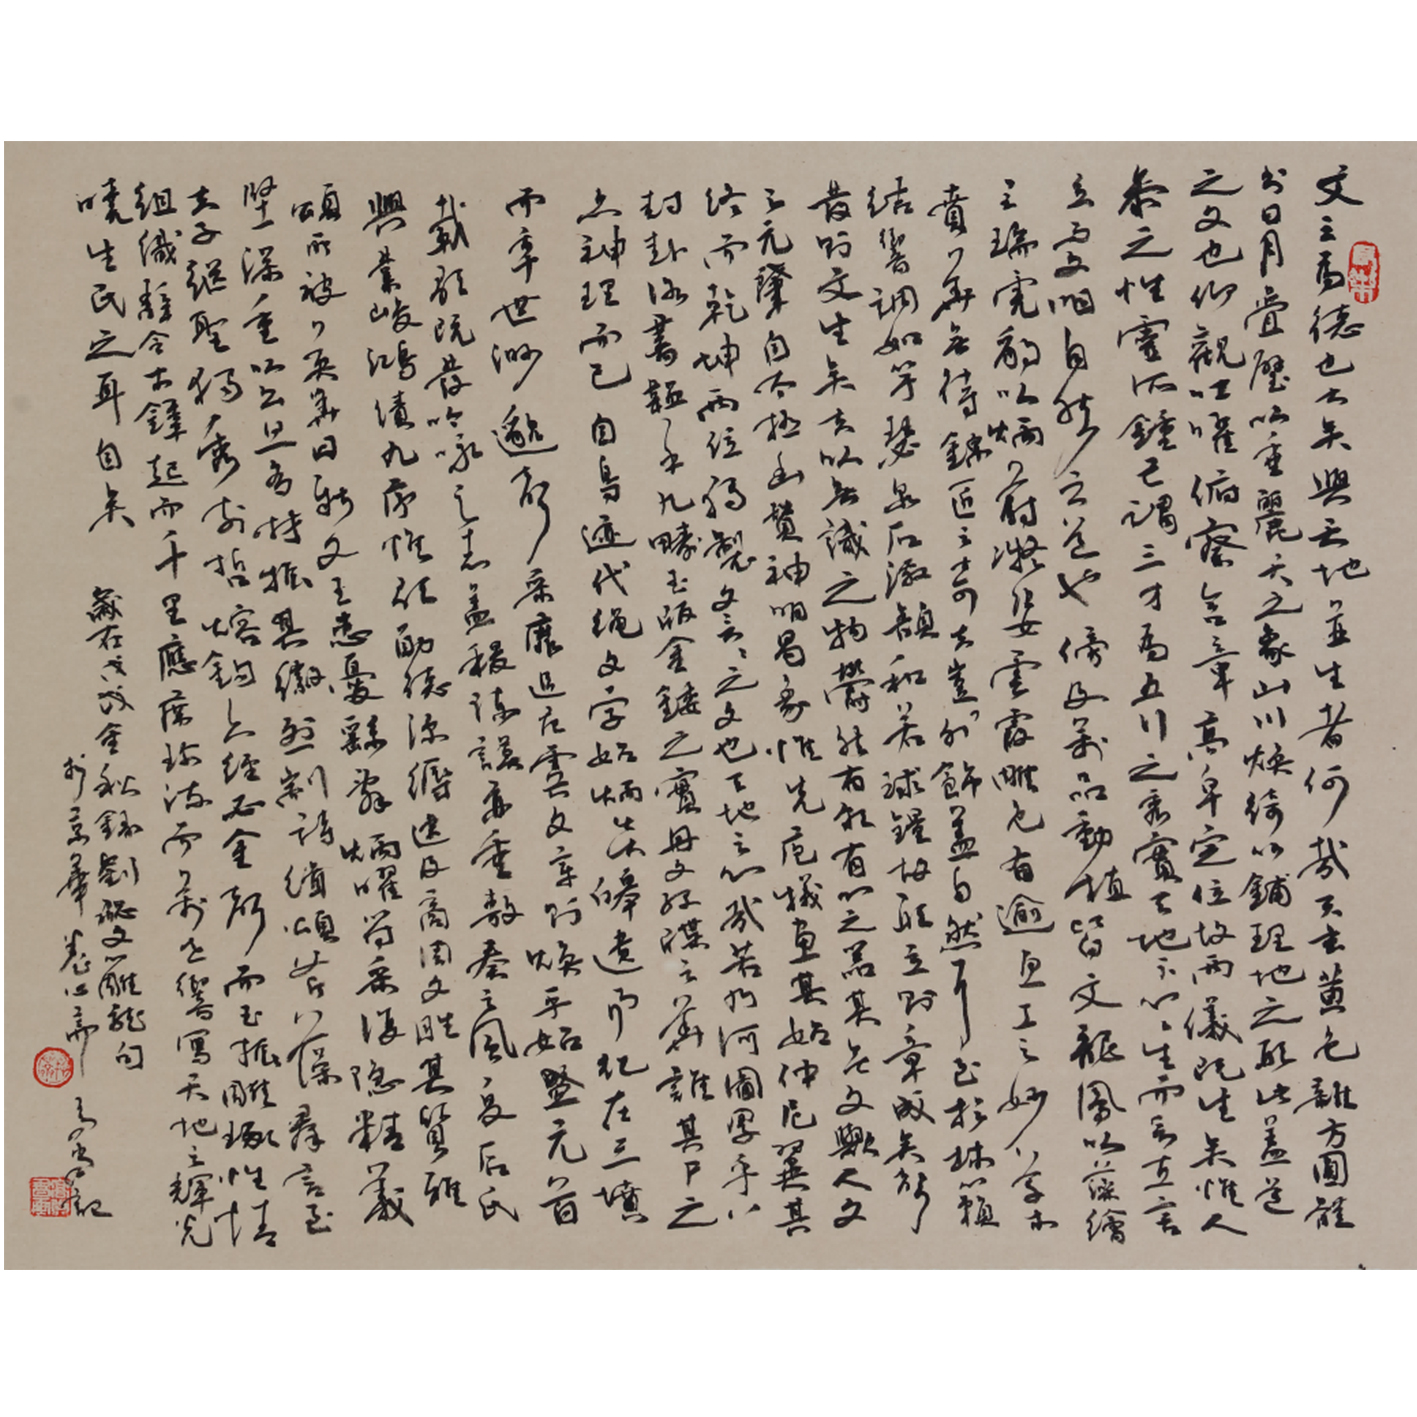 文之為德也大矣與天地並生者何哉夫玄黃色雜方圓體
分日月疊璧以垂麗天之象山川煥綺以鋪理地之形此蓋道
之文也仰觀吐曜俯察含章高卑定位故兩儀既生矣惟人
參之性靈所鍾是謂三才為五行之秀實天地之心心生而言立言
立而文明自然之道也傍及萬品動植皆文龍鳳以藻繪
呈瑞虎豹以炳蔚凝姿雲霞雕色有逾畫工之妙草木
賁華無待錦匠之奇夫豈外飾蓋自然耳至於林籟
結響調如竽瑟泉石激韻和若球鍠故形立則章成矣聲
發則文生矣夫以無識之物鬱然有彩有心之器其無文歟人文
之元肇自太極幽贊神明易象惟先庖犧畫其始仲尼翼其
終而乾坤兩位獨製文言言之文也天地之心哉若乃河圖孕乎八
卦洛書韞乎九疇玉版金鏤之實丹文綠牒之華誰其尸之
亦神理而已自鳥迹代繩文字始炳炎皞遺事紀在三墳
而年世渺邈聲采靡追唐虞文章則煥乎始盛元首
載歌既發吟詠之志益稷陳謨亦垂敷奏之風夏后氏
興業峻鴻績九序惟歌勛德彌縟逮及商周文勝其質雅
頌所被英華日新文王患憂繇辭炳曜符采複隱精義
堅深重以公旦多材振其徽烈剬詩緝頌斧藻群言至
夫子繼聖獨秀前哲熔鈞六經必金聲而玉振雕琢性情
組織辭令木鐸起而千里應席珍流而萬世響寫天地之輝光
曉生民之耳目矣
歲在戊戌金秋錄劉勰文心雕龍句
於京華養心齋